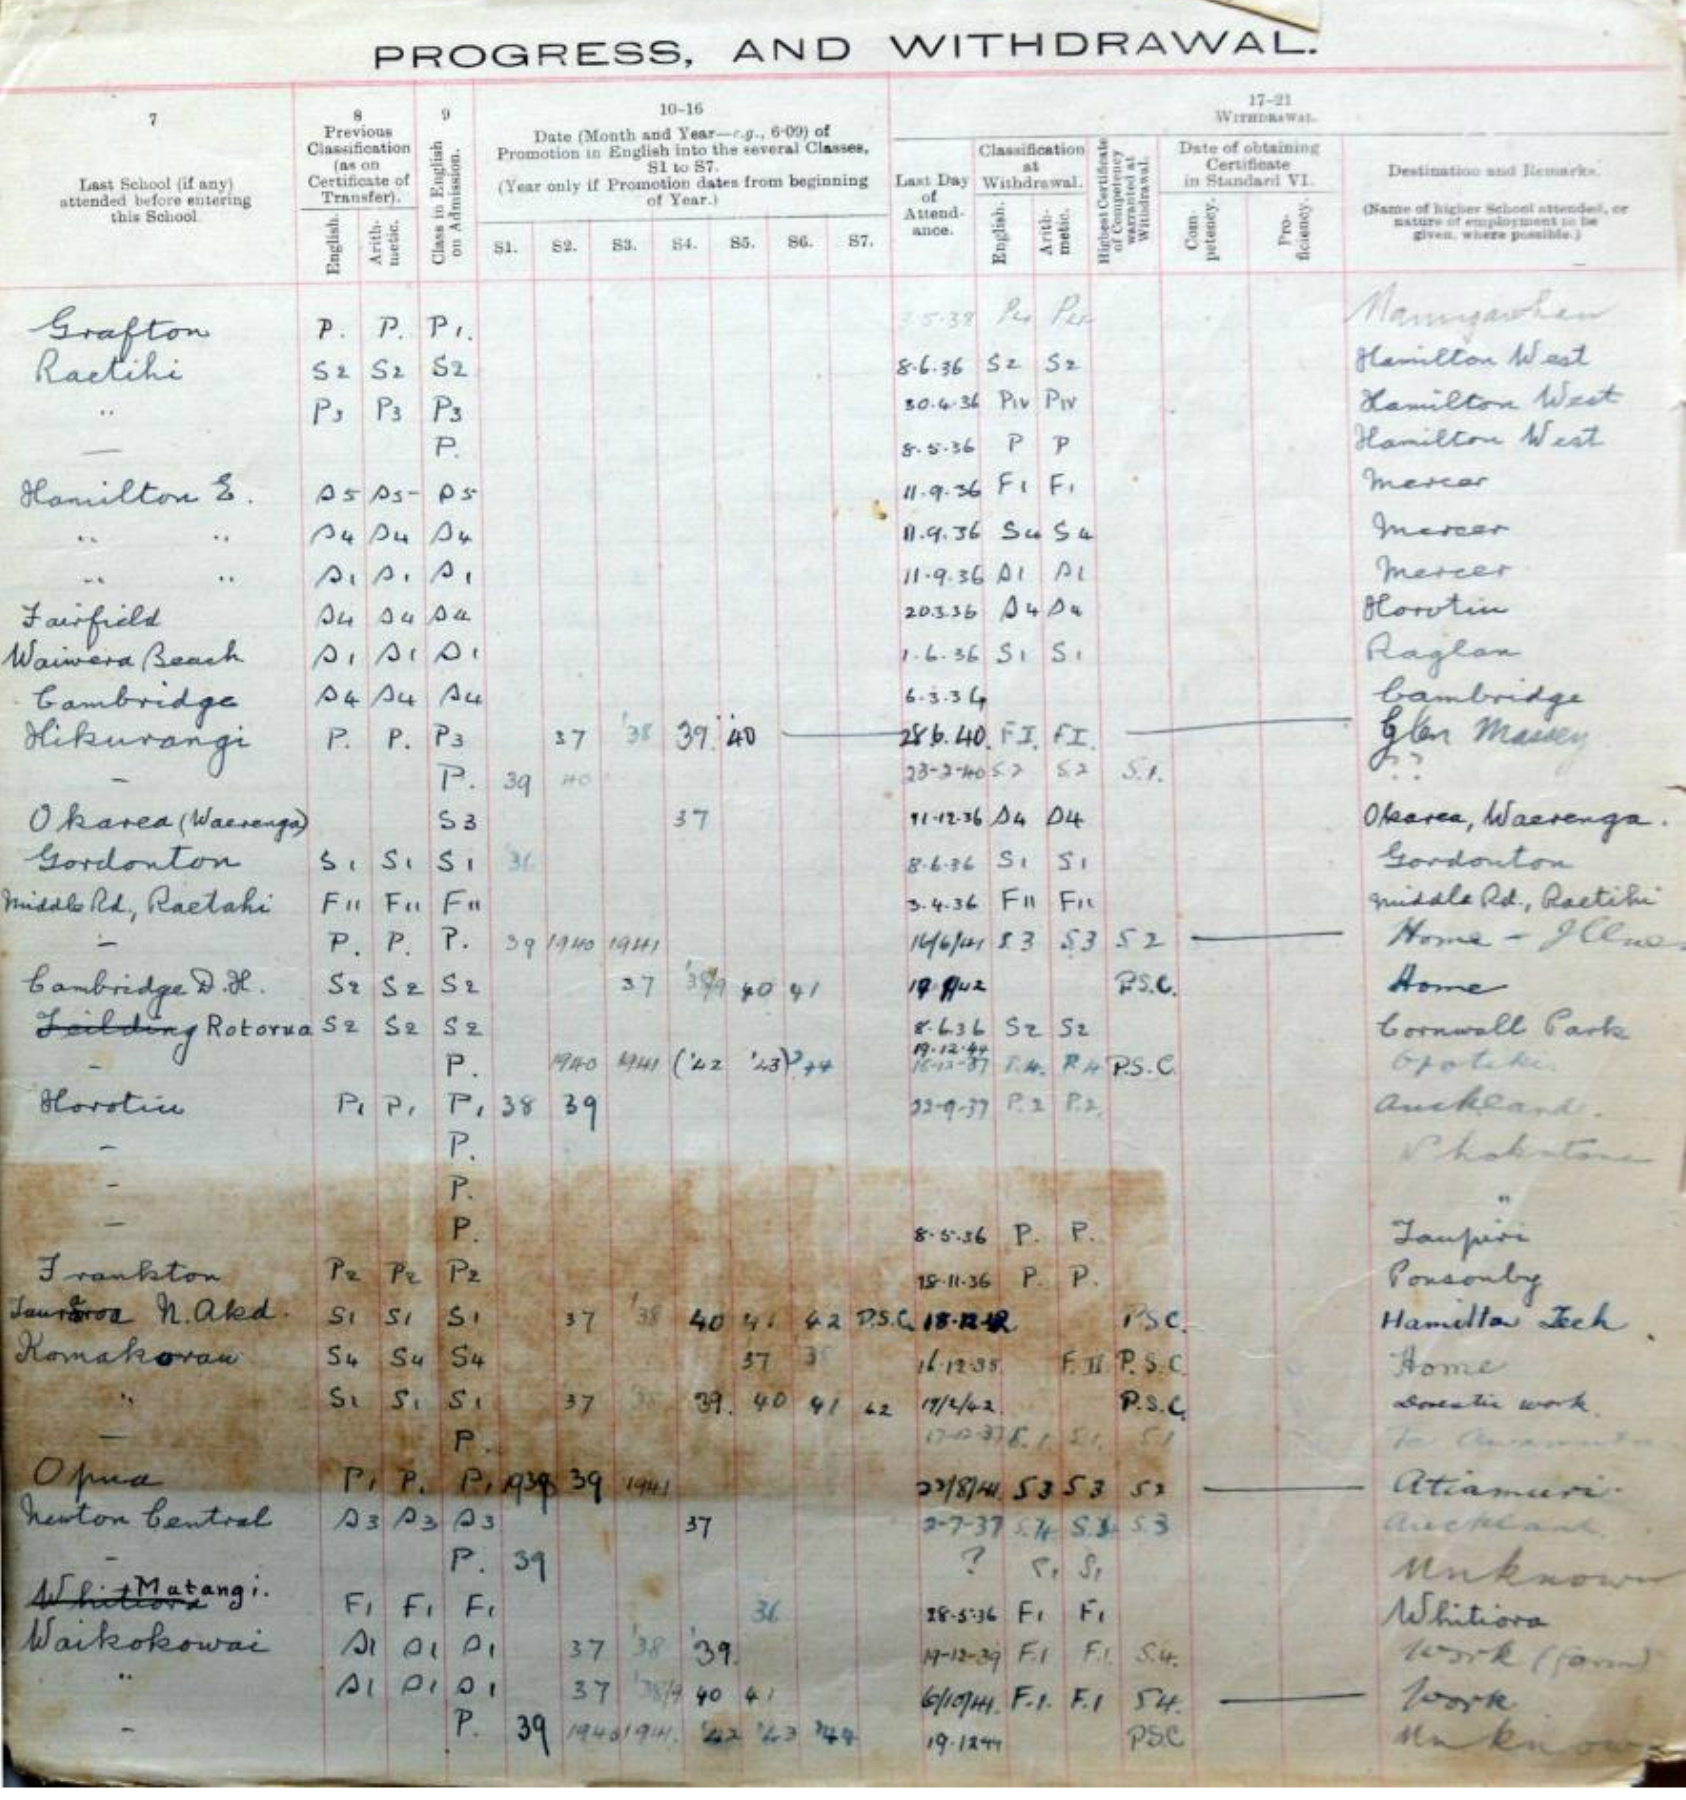 PROGRESS, AND WITHDRAWAL.
7
Last School (if any) attended before entering this School.
8
Previous Classification (as on Certificate of Transfer).
English.
Arithmetic.
9
Class in English on Admission.
10-16
Date (Month and Year—e.g., 6·09) of Promotion in English into the several Classes, S1 to S7.
(Year only if Promotion dates from beginning of Year.)
S1. S2. S3. S4. S5. S6. S7.
17-21
WITHDRAWAL.
Last Day of Attendance.
Classification at Withdrawal.
English.
Arithmetic.
Highest Certificate of Competency warranted at Withdrawal.
Date of obtaining Certificate in Standard VI.
Competency.
Proficiency.
Destination and Remarks.
(Name of higher School attended, or nature of employment to be given, where possible.)
Grafton P. P. P1.
Raetihi S2 S2 S2 8.6.36 S2 S2 Hamilton West
" P3 P3 P3 30.4.36 PIV PIV Hamilton West
— P. 8.5.36 P P Hamilton West
Hamilton E. S5 S5 S5 11.9.36 F1 F1 Mercer
" " S4 S4 S4 11.9.36 S4 S4 Mercer
" " S1 S1 S1 11.9.36 S1 S1 Mercer
Fairfield S4 S4 S4 20.3.36 S4 S4 Horotiu
Waiwera Beach S1 S1 S1 1.6.36 S1 S1 Raglan
Cambridge S4 S4 S4 6.3.36 Cambridge
Hikurangi P. P. P3 37 '38 39. '40 28.6.40. FI. FI. Glen Massey
— P. 39 40 S.2 S.2 S.1. ??
Okarea (Waerenga) S3 37 11-12-36 S4 S4 Okarea, Waerenga.
Gordonton S1 S1 S1 36 8.6.36 S1 S1 Gordonton
Middle Rd, Raetahi F11 F11 F11 3.4.36 F11 F11 Middle Rd., Raetihi
— P. P. P. 39 1940 1941 16/6/41 S3 S3 S2 Home -
Cambridge D.H. S2 S2 S2 37 40 41 P.S.C. Home
Feilding Rotorua S2 S2 S2 8.6.36 S2 S2 Cornwall Park
— P. 1940 1941 ('42 '43) 44 19.12.44 P.S.C. Opotiki
Horotiu P1 P1 P1 38 39 22-9-37 P.2 P.2. Auckland.
— P.
— P. "
— P. 8.5.36 P. P. Taupiri
Frankton P2 P2 P2 P. P. Ponsonby
N. Akd. S1 S1 S1 37 '38 40 41 42 P.S.C. 18.12.42 P.S.C. Hamilton Tech.
Komakorau S4 S4 S4 37 38 16.12.38 F.II P.S.C. Home
" S1 S1 S1 37 38 39. 40 41 42 P.S.C. Domestic work.
— P. S1
Opua P1 P. P1 1939 39 1941 22/8/41. S3 S3 S2 Atiamuri
Newton Central S3 S3 S3 37 2-7-37 S.3 Auckland.
— P. 39 ? S1 S1 Unknown
Whitiora Matangi. F1 F1 F1 36 28.5.36 F1 F1 Whitiora
Waikokowai S1 S1 S1 37 '38 '39. 19-12-39 F.1 F.1. S.4. Work (farm)
" S1 S1 S1 37 38/9 40 41 6/10/41. F.1. F.1 S4. Work
— P. 39 1940 1941. '42 '43 '44 19.12.44 PSC Unknown